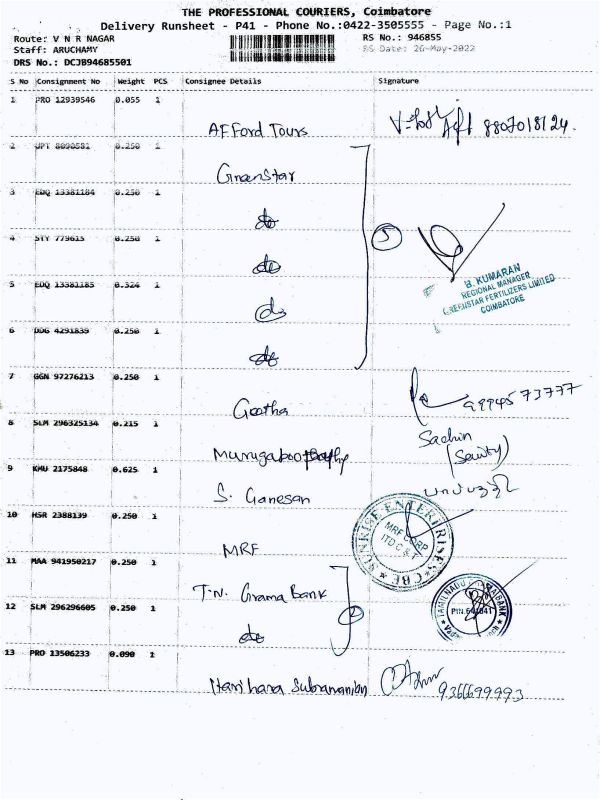 THE PROFESSIONAL COURIERS, Coimbatore
Delivery Runsheet - P41 - Phone No.:0422-3505555 - Page No.:1
Route: V N R NAGAR RS No.: 946855
Staff: ARUCHAMY RS Date: 26-May-2022
DRS No.: DCJB94685501
S No Consignment No Weight PCS Consignee Details Signature
1 PRO 12939546 0.055 1
Afford Tours 8807018124.
2 JPT 8090581 0.250 1
GreenStar
3 EDQ 13381184 0.250 1
do
4 STY 779615 0.250 1
do 5
B. KUMARAN
REGIONAL MANAGER
GREENSTAR FERTILIZERS LIMITED
COIMBATORE
5 EDQ 13381185 0.324 1
do
6 DDG 4291839 0.250 1
do
7 GGN 97276213 0.250 1
Geetha 9994573777
8 SLM 296325134 0.215 1
Sachin
Murugaboopathy
9 KMU 2175848 0.625 1
S. Ganesan
10 HSR 2388139 0.250 1
SUNRISE ENTERPRISES * CBE *
MRF CORP
ITD C & T
MRF
11 MAA 941950217 0.250 1
T.N. Grama Bank
12 SLM 296296605 0.250 1
do 2
TAMILNADU
13 PRO 13506233 0.090 1
Harihara Subramanian 9366699993